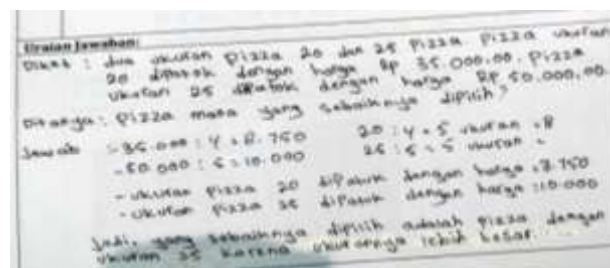 Uraian Jawaban:
Diket : dua ukuran pizza 20 dan 25 pizza ukuran
20 dipatok dengan harga Rp 35.000,00. Pizza
ukuran 25 dipatok dengan harga Rp 50.000,00.
Ditanya: Pizza mana yang sebaiknya dipilih?
Jawab - 35.000 : 4 = 8.750 20 : 4 = 5 ukuran =
- 50.000 : 5 = 10.000 25 : 5 = 5 ukuran =
- ukuran pizza 20 dipatok dengan harga : 8.750
- ukuran pizza 25 dipatok dengan harga : 10.000
Jadi, yang sebaiknya dipilih adalah pizza dengan
ukuran 25 karena ukurannya lebih besar.